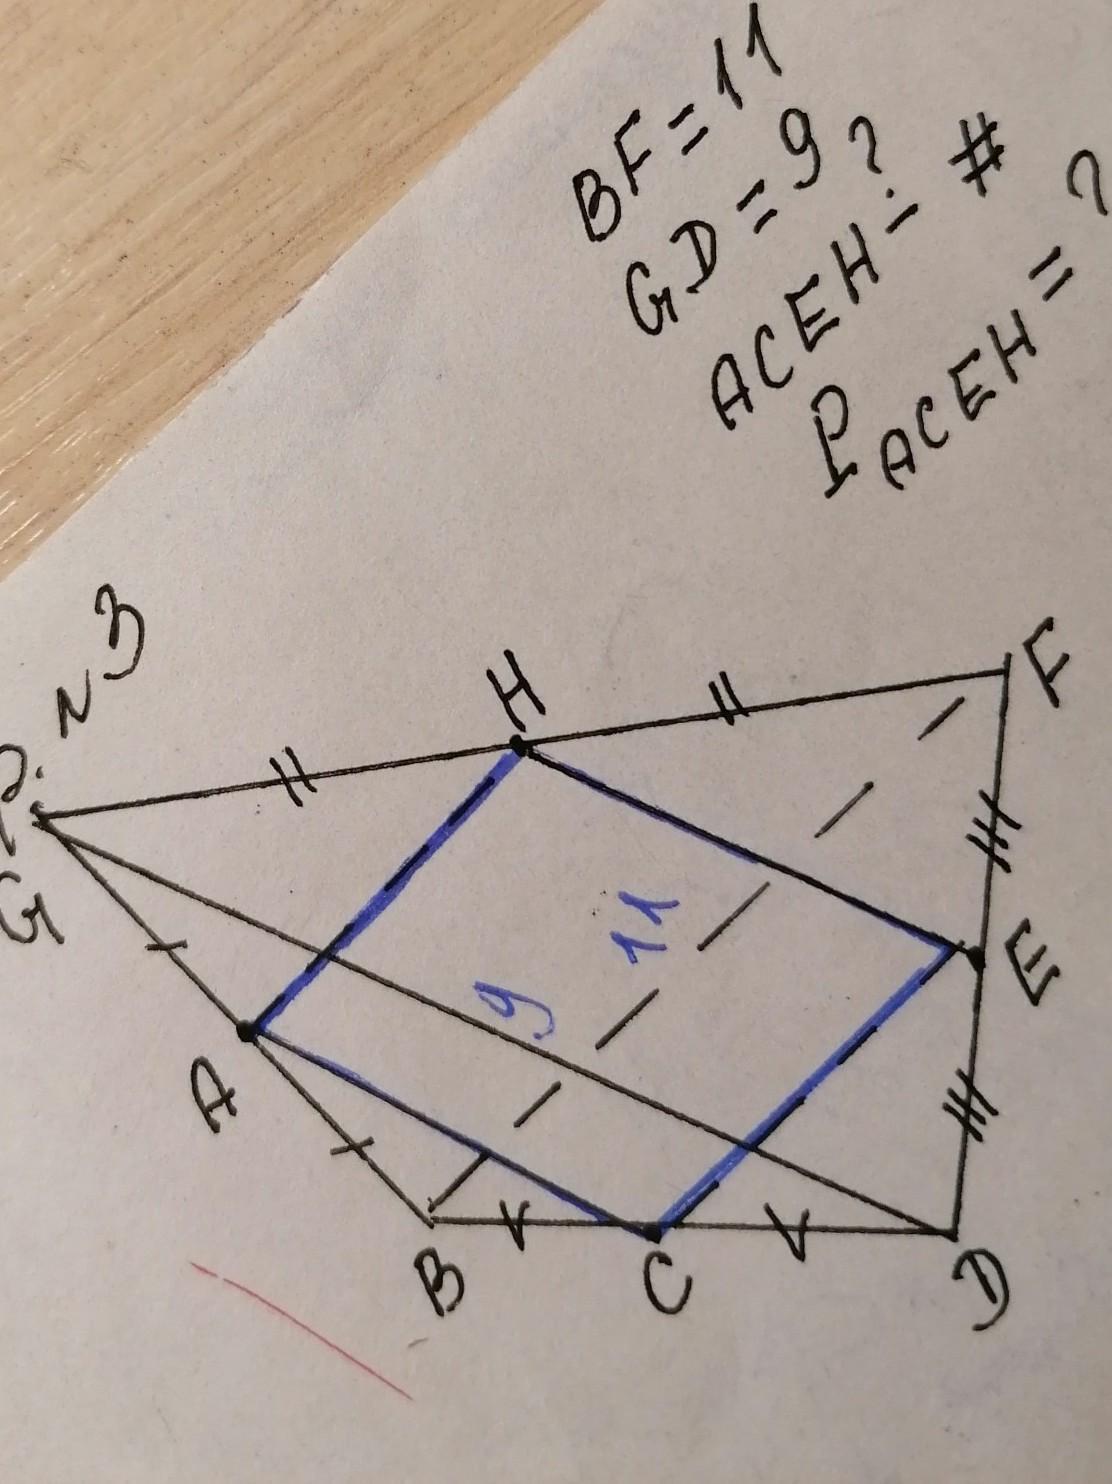 BF = 11
GD = 9
ACEH - # ?
P ACEH = ?
N 3
H
F
G
9
11
E
A
B
C
D